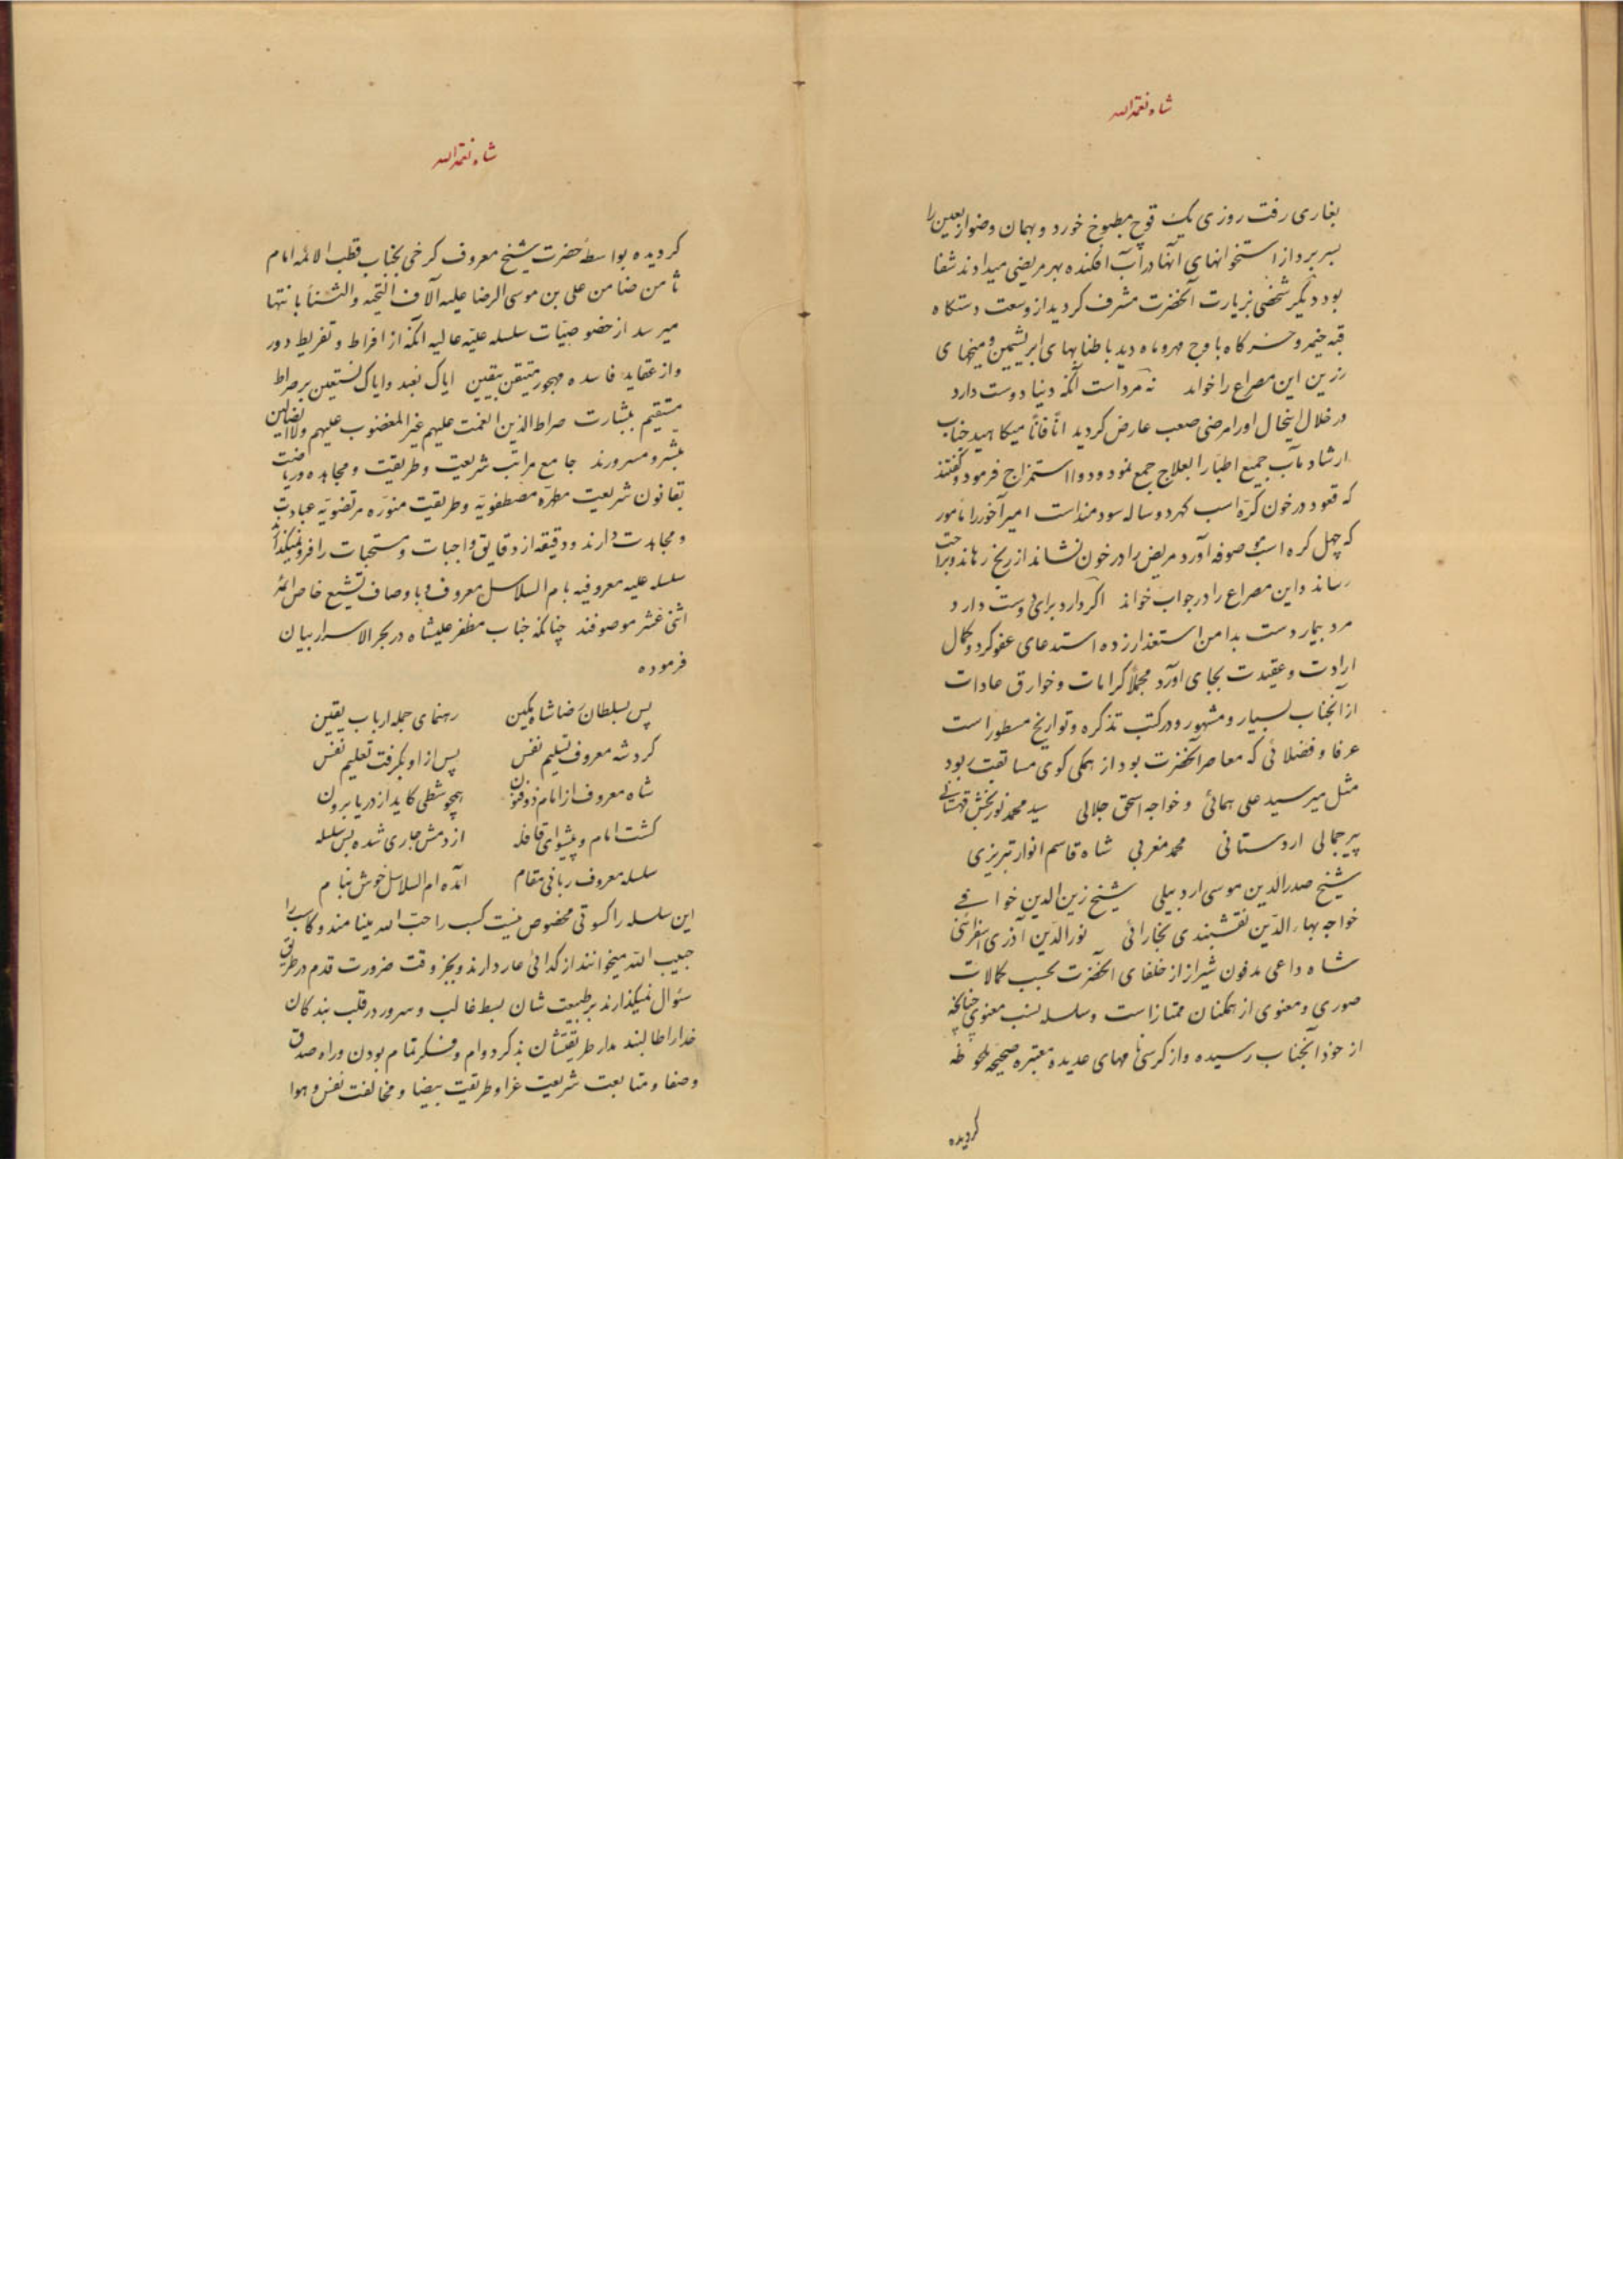 شاه نعمةالله
بغاری رفت روزی یک قوچ مطبوخ خورد و بهمان وضو اربعین را
بسر برد از استخوانهای آنها در آب افکنده بهر مریضی میدادند شفا
بود دیگر شخصی بزیارت آنحضرت مشرف کردید از وسعت دستکاه
قبه خیمه و خرکاه باوج مهر و ماه دید با طنابهای ابریشمین و میخهای
رزین این مصراع را خواند نه مرد است آنکه دنیا دوست دارد
در خلال اینحال او را مرضی صعب عارض کردید اناً فاناً میکاهید جناب
ارشاد مآب جمیع اطبا را بعلاج جمع نمود و دوا استمزاج فرمود و گفتند
که قعود در خون کره اسب کهر دو ساله سودمند است امیر آخور را مامور
که چهل کره اسب موصوفه آورد مریض را در خون نشاند از رنج رهاند و براحت
رساند و این مصراع را در جواب خواند اکر دارد برای دوست دارد
مرد بیمار دست بدامن استغذار زده استدعای عفو کرد و کمال
ارادت و عقیدت بجای آورد مجملاً کرامات و خوارق عادات
از آنجناب بسیار و مشهور و در کتب تذکره و تواریخ مسطور است
عرفا و فضلائی که معاصر آنحضرت بود از همکی کوی مسابقت ربود
مثل میر سید علی همدانی و خواجه اسحق جلالی سید محمد نوربخش قهستانی
پیر جمالی اردستانی محمد مغربی شاه قاسم انوار تبریزی
شیخ صدرالدین موسی اردبیلی شیخ زین الدین خوافی
خواجه بهاء الدین نقشبندی بخارائی نورالدین آذری اسفراینی
شاه داعی مدفون شیراز از خلفای آنحضرت بحسب کمالات
صوری و معنوی از همکنان ممتاز است و سلسله نسب معنوی چنانچه
از خود آنجناب رسیده و از کرسی نامهای عدیده معتبره صحیحه ملحوظه
کردیده
شاه نعمةالله
کردیده بواسطه حضرت شیخ معروف کرخی بجناب قطب الائمه امام
ثامن ضامن علی بن موسی الرضا علیه آلاف التحیه والثنا بانتها
میرسد از خصوصیات سلسله علیه عالیه آنکه از افراط و تفریط دور
و از عقاید فاسده مهجور متیقن بیقین ایاک نعبد و ایاک نستعین بر صراط
مستقیم ببشارت صراط الذین انعمت علیهم غیر المغضوب علیهم ولاالضالین
مبشر و مسرورند جامع مراتب شریعت و طریقت و مجاهده و ریاضت
بقانون شریعت مطهره مصطفویه و طریقت منوره مرتضویه عبادت
و مجاهدت دارند و دقیقه از دقایق واجبات و مستحبات را فرونمیکذارند
سلسله علیه معروفیه بام السلاسل معروف و باوصاف تشیع خاص ائمه
اثنی عشر موصوفند چنانکه جناب مظفر علیشاه در بحر الاسرار بیان
فرموده
پس بسلطان رضا شاه مکین رهنمای جمله ارباب یقین
کرد شه معروف تسلیم نفس پس از او بکرفت تعلیم نفس
شاه معروف از امام ذوفنون همچو شطی کاید از دریا برون
کشت امام و پیشوای قافله از دمش جاری شده بس سلسله
سلسله معروف ربانی مقام آمده ام السلاسل خوش بنام
این سلسله را کسوتی مخصوص نیست کسب را حب الله مینامند و کاسب را
حبیب الله میخوانند از کدائی عار دارند و بجز وقت ضرورت قدم در طریق
سئوال نمیکذارند بر طبیعت شان بسط غالب و سرور در قلب بندکان
خدا را طالبند مدار طریقتشان بذکر دوام و فکر تمام بودن و راه صدق
و صفا و متابعت شریعت غرا و طریقت بیضا و مخالفت نفس و هوا